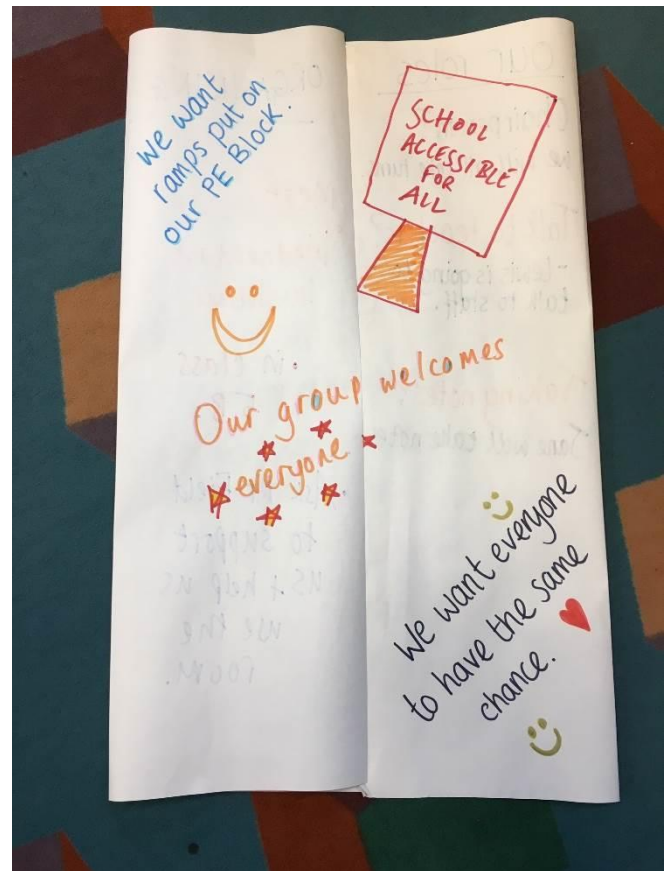 We want
ramps put on
our PE Block.
SCHOOL
ACCESSIBLE
FOR
ALL
Our group welcomes
everyone
We want everyone
to have the same
chance.